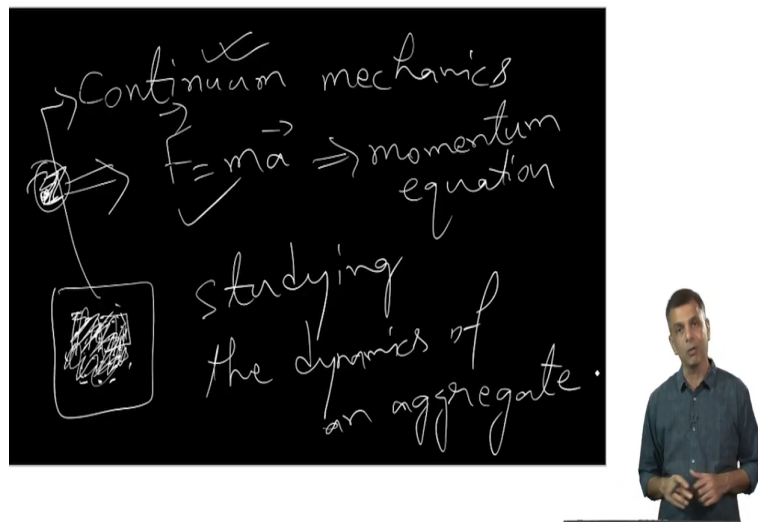 Continuum mechanics
F = ma ⇒ momentum
equation
studying
the dynamics of
an aggregate.